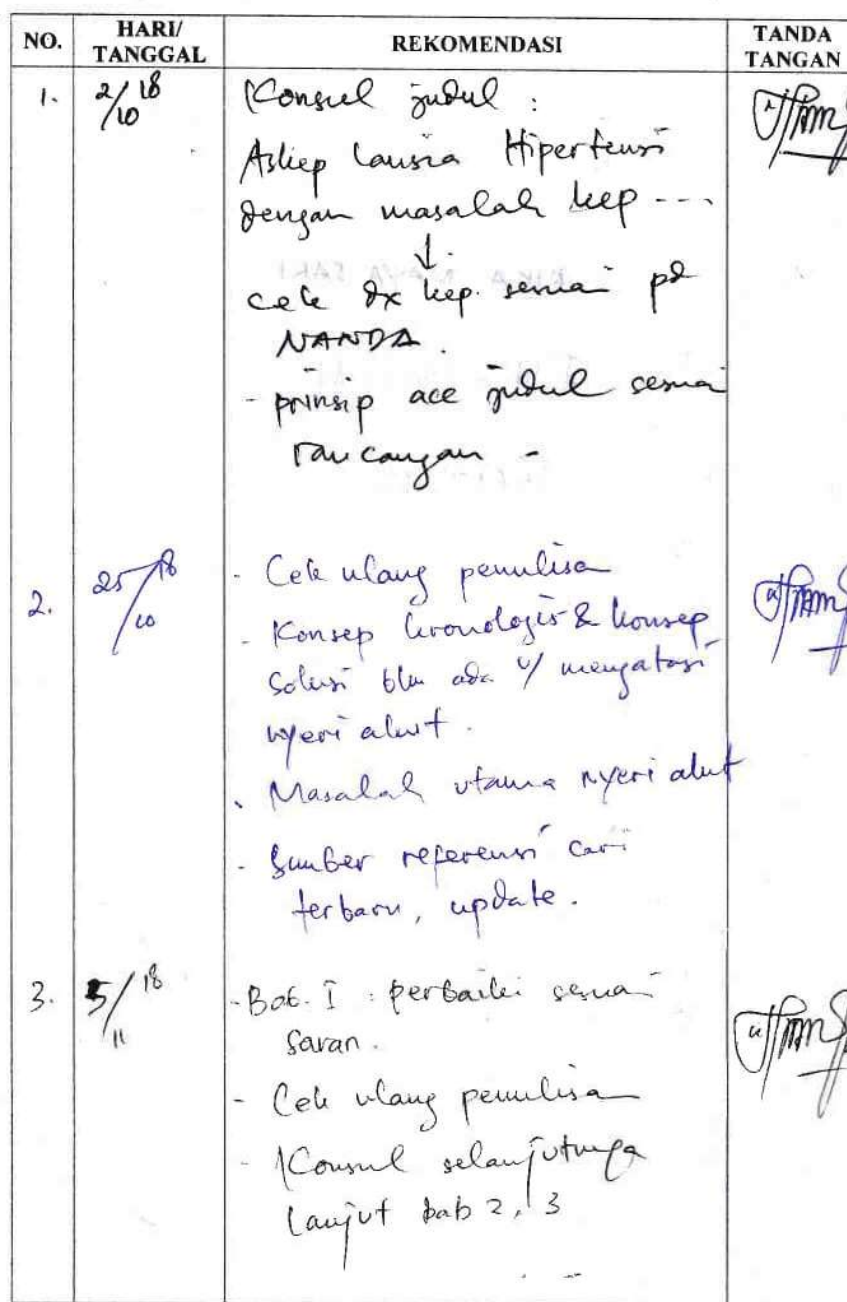 NO.
HARI/
TANGGAL
REKOMENDASI
TANDA
TANGAN
1.
2/10 18
Konsul judul :
Askep Lansia Hipertensi
dengan masalah kep ----
↓
cek dx kep. sesuai pd
NANDA.
- prinsip acc judul sesuai
rancangan -
2.
25/10 18
- Cek ulang penulisa
- Konsep kronologis & konsep
solusi blm ada u/ mengatasi
nyeri akut.
- Masalah utama nyeri akut
- Sumber referensi cari
terbaru, update.
3.
5/11 18
- Bab. I : perbaiki sesuai
saran.
- Cek ulang penulisa
- Konsul selanjutnya
lanjut bab 2, 3